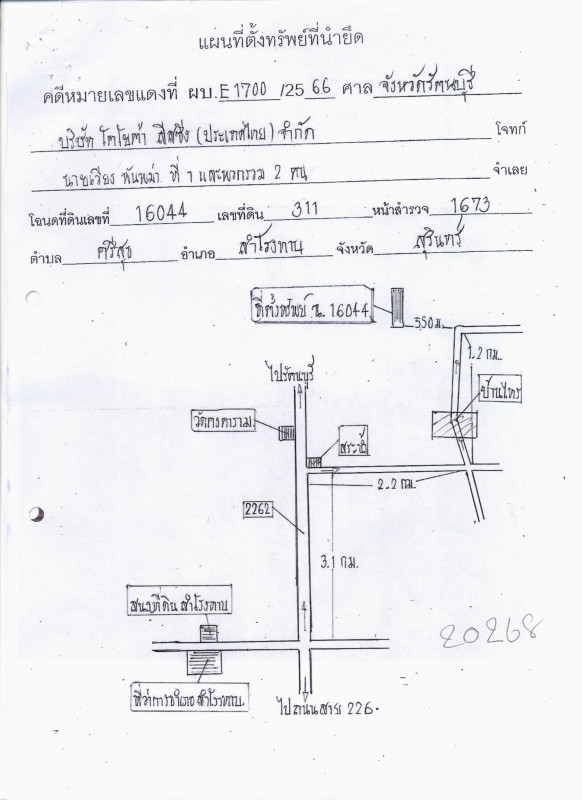 แผนที่ตั้งทรัพย์ที่นำยึด
คดีหมายเลขแดงที่ ผบ.E1700/2566 ศาล จังหวัดรัตนบุรี
บริษัท โตโยต้า ลีสซิ่ง (ประเทศไทย) จำกัด โจทก์
นายเวียง พันหม่า ที่ 1 และพวกรวม 2 คน จำเลย
โฉนดที่ดินเลขที่ 16044 เลขที่ดิน 311 หน้าสำรวจ 1673
ตำบล ศรีสุข อำเภอ สำโรงทาบ จังหวัด สุรินทร์
ที่ตั้งทรัพย์ น. 16044
550 ม.
1.2 กม.
ไปรัตนบุรี
บ้านไทร
วัดคงคาราม
สระน้ำ
2.2 กม.
2262
3.1 กม.
สนง.ที่ดิน สำโรงทาบ
20268
ที่ว่าการอำเภอ สำโรงทาบ
ไปถนนสาย 226.